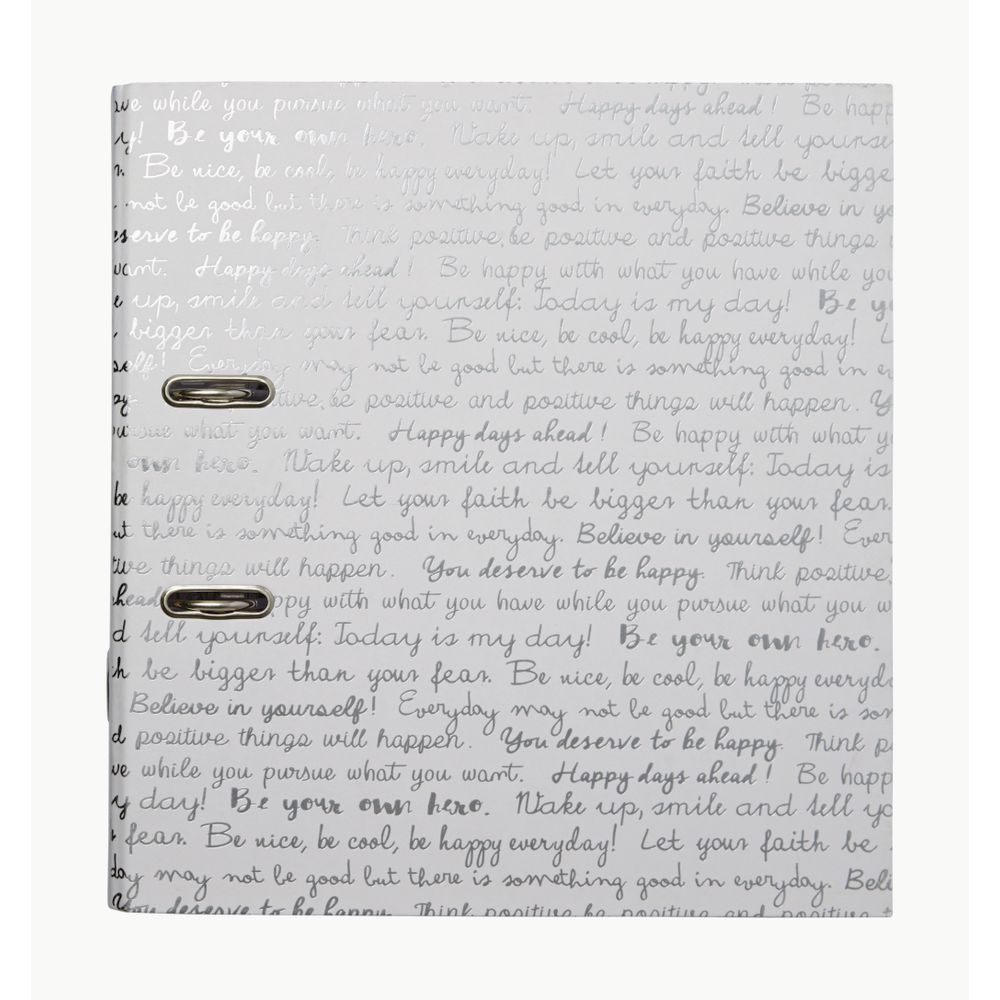 ve while you pursue what you want. Happy days ahead! Be happ
y! Be your own hero. Wake up, smile and tell yourse
r. Be nice, be cool, be happy everyday! Let your faith be bigge
not be good but there is something good in everyday. Believe in yo
eserve to be happy. Think positive, be positive and positive things
want. Happy days ahead! Be happy with what you have while you
e up, smile and tell yourself: Today is my day! Be yo
bigger than your fear. Be nice, be cool, be happy everyday! L
self! Everyday may not be good but there is something good in ev
py. tive, be positive and positive things will happen. Y
ursue what you want. Happy days ahead! Be happy with what y
own hero. Wake up, smile and tell yourself: Today is
be happy everyday! Let your faith be bigger than your fear.
ut there is something good in everyday. Believe in yourself! Ever
tive things will happen. You deserve to be happy. Think positive,
ahead ppy with what you have while you pursue what you w
d tell yourself: Today is my day! Be your own hero.
h be bigger than your fear. Be nice, be cool, be happy everyd
Believe in yourself! Everyday may not be good but there is som
d positive things will happen. You deserve to be happy. Think p
ve while you pursue what you want. Happy days ahead! Be happ
y day! Be your own hero. Wake up, smile and tell yo
fear. Be nice, be cool, be happy everyday! Let your faith be
day may not be good but there is something good in everyday. Beli
You deserve to be happy. Think positive, be positive and positive